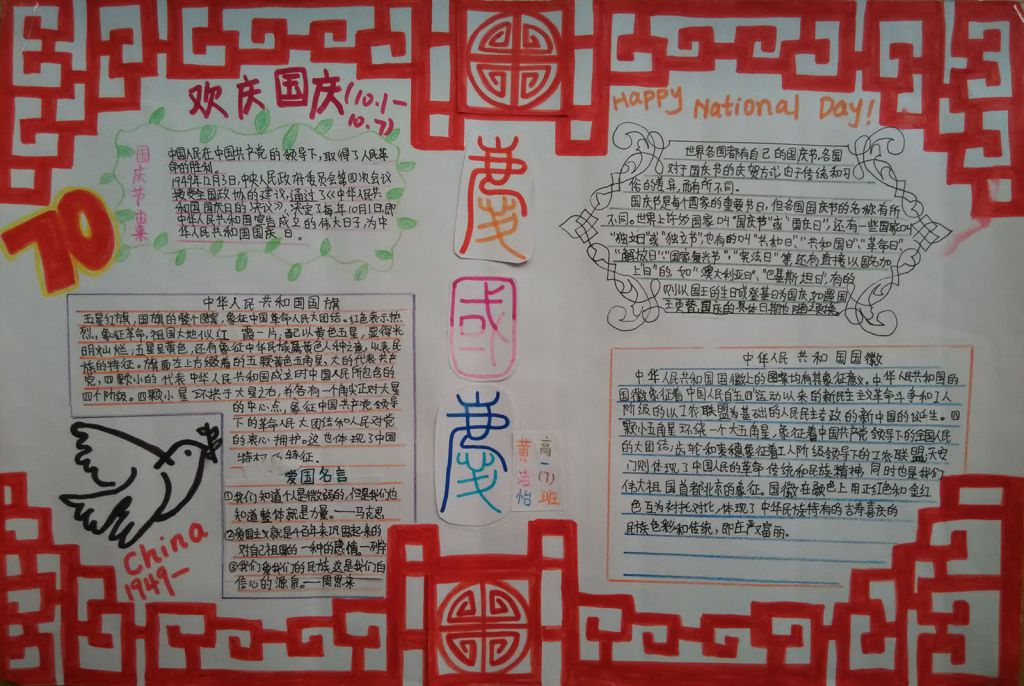 欢庆国庆(10.1—
10.7)
国庆节由来
中国人民在中国共产党的领导下,取得了人民革
命的胜利。
1949年12月3日,中央人民政府委员会第四次会议
接受全国政协的建议,通过了《中华人民共
和国国庆日的决议》,决定每年10月1日,即
中华人民共和国宣告成立的伟大日子,为中
华人民共和国国庆日。
70
中华人民共和国国旗
五星红旗,国旗的整个图案,象征中国革命人民大团结。红色表示热
烈,象征革命,祖国大地似红霞一片,配以黄色五星,显得光
明灿烂;五星呈黄色,还有象征中华民族属黄色人种之意,以表民
族的特征。旗面左上方缀着的五颗黄色五角星,大的代表共产
党,四颗小的代表中华人民共和国成立时中国人民所包含的
四个阶级。四颗小星环拱于大星之右,并各有一个角尖正对大星
的中心点,象征中国共产党领导
下的革命人民大团结和人民对党
的衷心拥护。这也体现了中国
特征。
爱国名言
①我们知道个人是微弱的,但是我们也
知道整体就是力量。——马克思
②爱国主义就是千百年来巩固起来的
对自己祖国的一种的感情。—列宁
③我们爱我们的民族,这是我们自
信心的源泉。—周恩来
China
1949—
慶
國
慶
高一(7)班
黄浩怡
Happy National Day!
世界各国都有自己的国庆节,各国
对于国庆节的庆贺方式,由于传统和习
俗的差异,而有所不同。
国庆节是每个国家的重要节日,但各国国庆节的名称有所
不同。世界上许多国家叫“国庆节”或“国庆日”,还有一些国家叫
“独立日”或“独立节”,也有的叫“共和日”、“共和国日”、“革命日”
“解放日”、“国家复兴节”、“宪法日”等,还有直接以国名加
上“日”的,如“澳大利亚日”,“巴基斯坦日”,有的
则以国王的生日或登基日为国庆,如遇国
王更替,国庆的具体日期也随之更换。
中华人民共和国国徽
中华人民共和国国徽上的图案均有其象征意义。中华人民共和国的
国徽象征着中国人民自五四运动以来的新民主主义革命斗争和工人
阶级的以工农联盟为基础的人民民主专政的新中国的诞生。四
颗小五角星环绕一个大五角星,象征着中国共产党领导下的全国人民
的大团结;齿轮和麦穗象征着工人阶级领导下的工农联盟,天安
门则体现了中国人民的革命传统和民族精神,同时也是我们
伟大祖国首都北京的象征。国徽在颜色上用正红色和金红
色互为衬托对比,体现了中华民族特有的吉寿喜庆的
民族色彩和传统,即庄严又富丽。